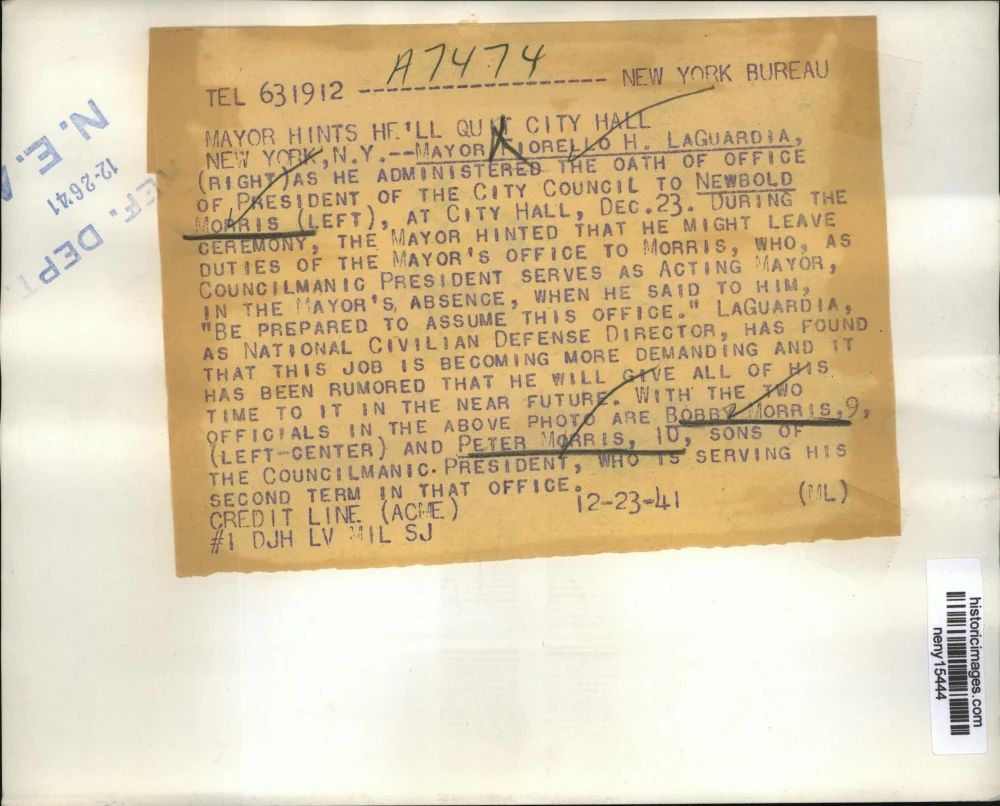 A7474
TEL 631912 ---------------------- NEW YORK BUREAU
MAYOR HINTS HE'LL QUIT CITY HALL
NEW YORK, N.Y.--MAYOR FIORELLO H. LAGUARDIA,
(RIGHT) AS HE ADMINISTERED THE OATH OF OFFICE
OF PRESIDENT OF THE CITY COUNCIL TO NEWBOLD
MORRIS (LEFT), AT CITY HALL, DEC.23. DURING THE
CEREMONY, THE MAYOR HINTED THAT HE MIGHT LEAVE
DUTIES OF THE MAYOR'S OFFICE TO MORRIS, WHO, AS
COUNCILMANIC PRESIDENT SERVES AS ACTING MAYOR,
IN THE MAYOR'S, ABSENCE, WHEN HE SAID TO HIM,
"BE PREPARED TO ASSUME THIS OFFICE." LAGUARDIA,
AS NATIONAL CIVILIAN DEFENSE DIRECTOR, HAS FOUND
THAT THIS JOB IS BECOMING MORE DEMANDING AND IT
HAS BEEN RUMORED THAT HE WILL GIVE ALL OF HIS
TIME TO IT IN THE NEAR FUTURE. WITH THE TWO
OFFICIALS IN THE ABOVE PHOTO ARE BOBBY MORRIS, 9,
(LEFT-CENTER) AND PETER MORRIS, 10, SONS OF
THE COUNCILMANIC PRESIDENT, WHO IS SERVING HIS
SECOND TERM IN THAT OFFICE.
CREDIT LINE (ACME) 12-23-41 (ML)
#1 DJH LV MIL SJ
N.E.A
12-26-41
REF. DEPT
historicimages.com
neny15444